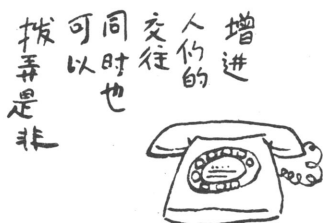 增进
人们的
交往
同时也
可以
拨弄是非